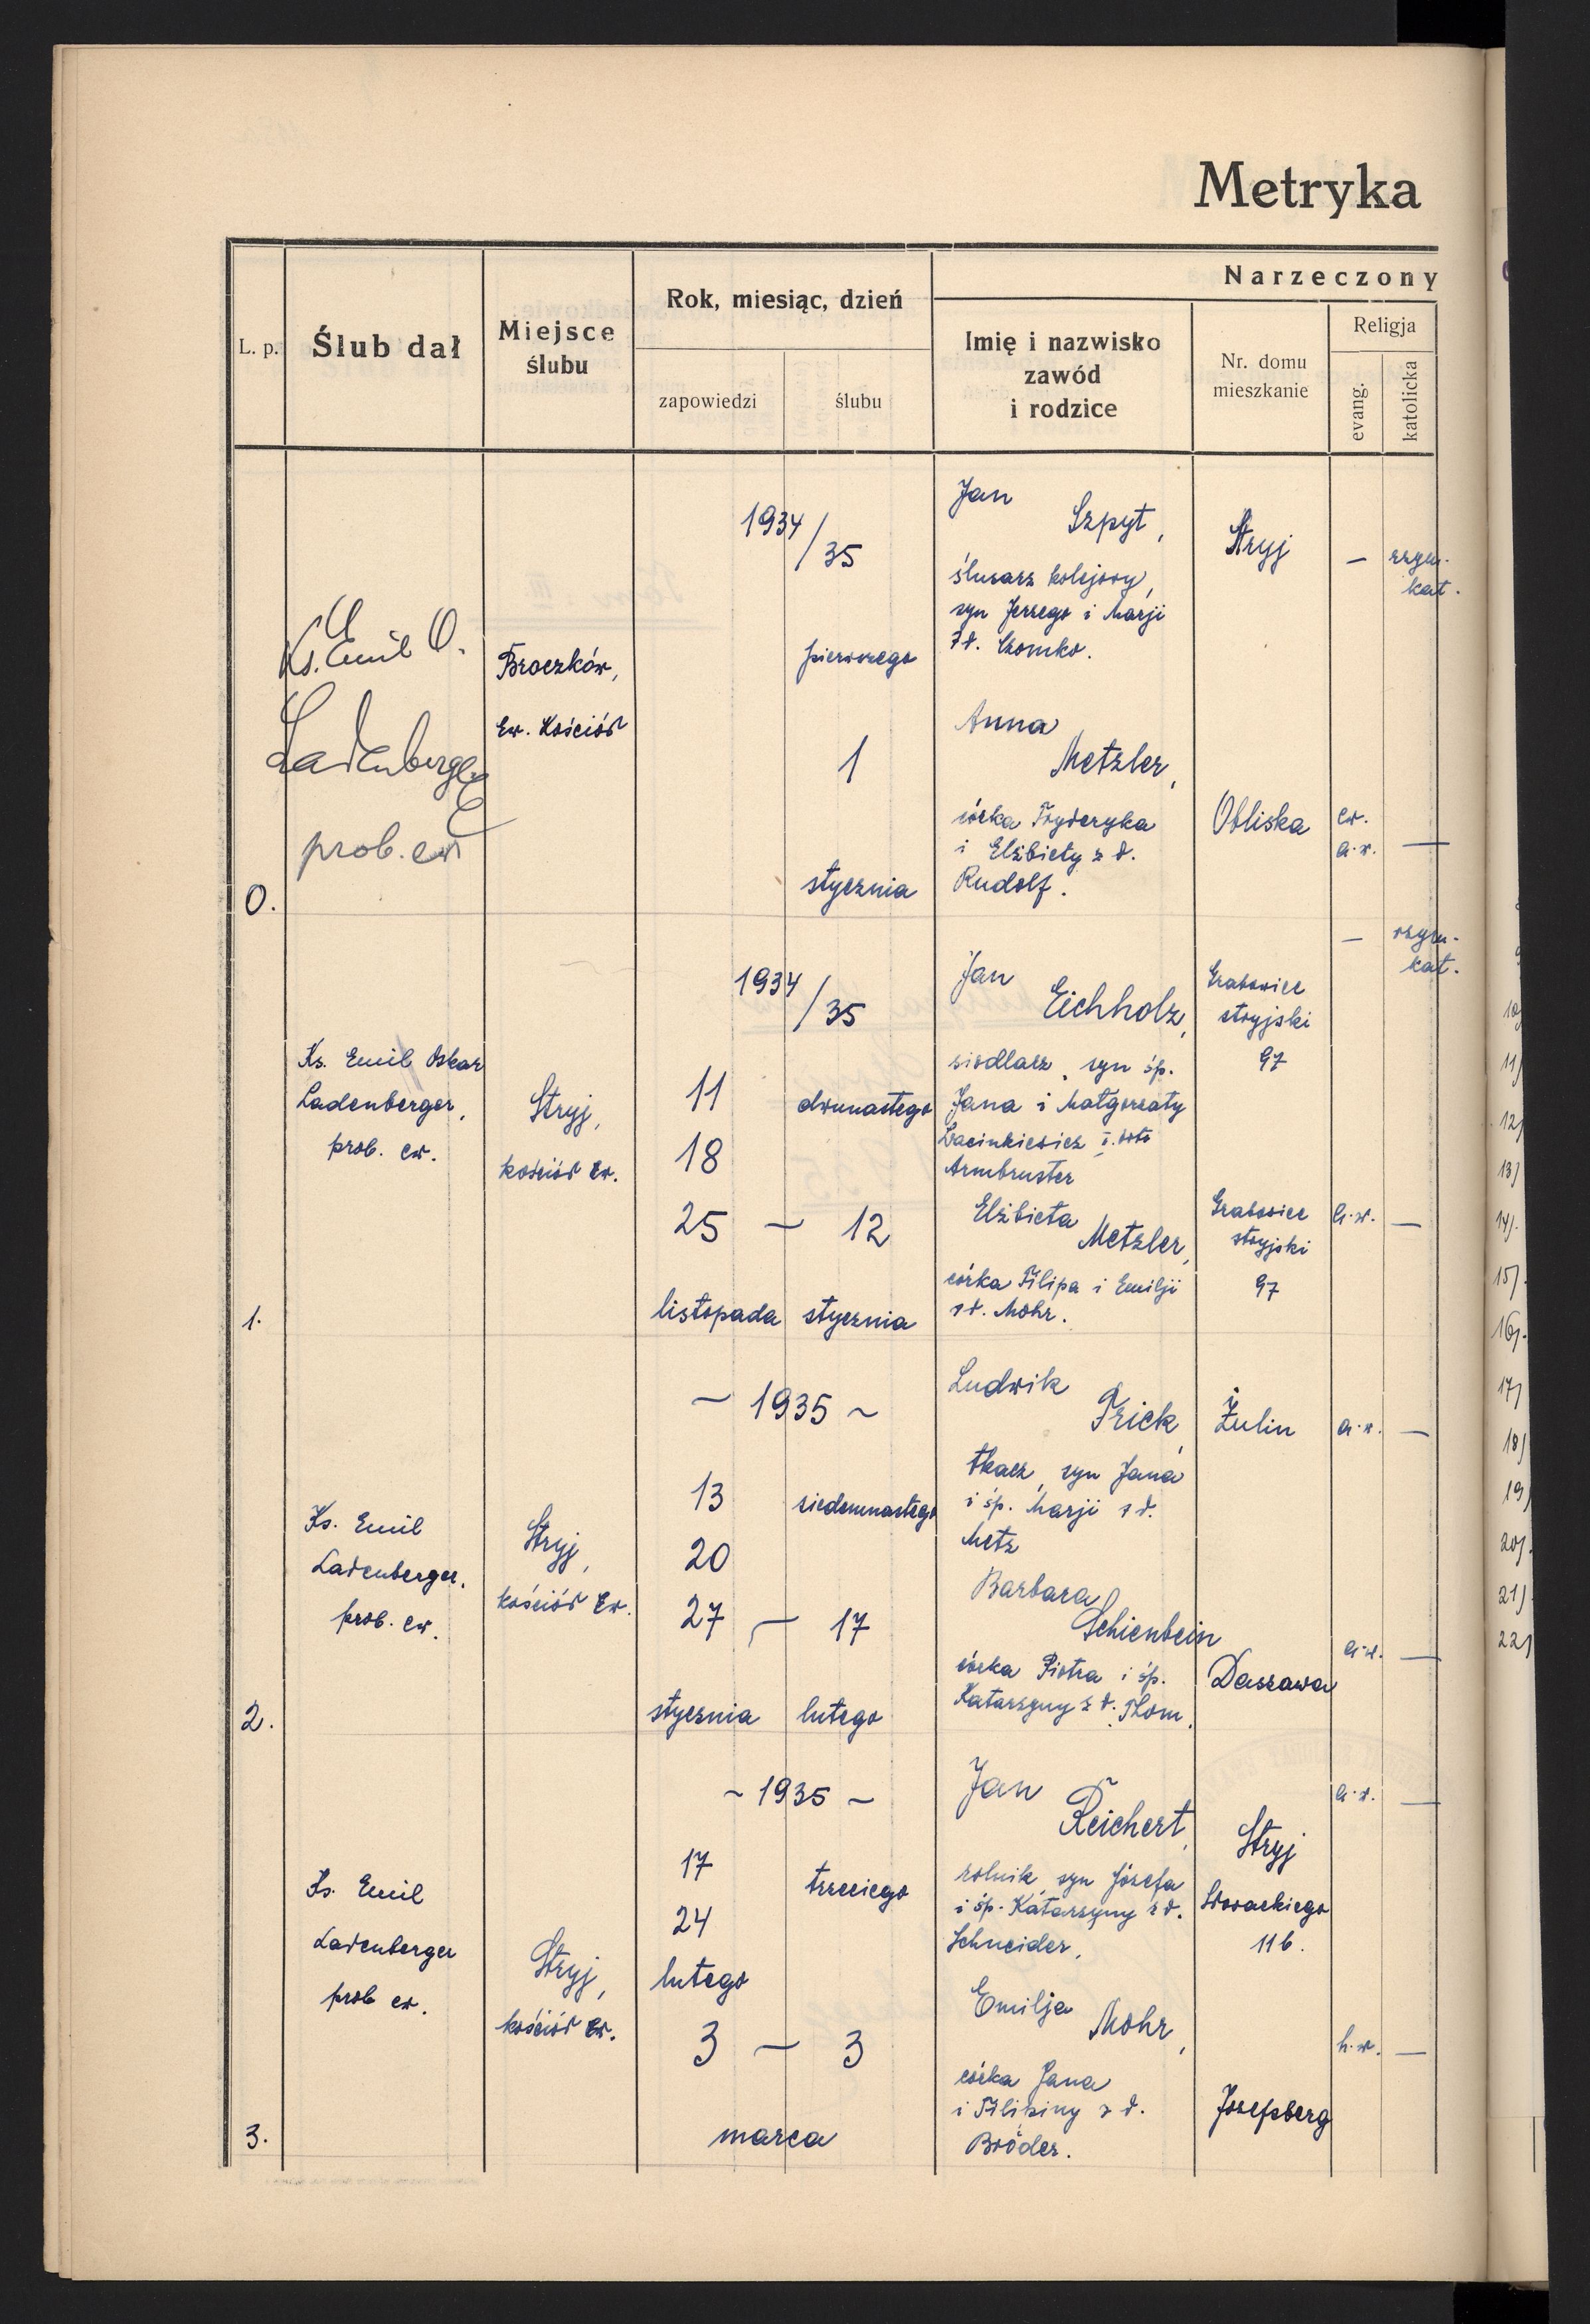 Metryka
L. p.
Ślub dał
Miejsce
ślubu
Rok, miesiąc, dzień
zapowiedzi
ślubu
Narzeczony
Imię i nazwisko
zawód
i rodzice
Nr. domu
mieszkanie
Religja
evang.
katolicka
0.
Ks. Emil O.
Ladenberger
prob. ew
Broczków,
Ew. Kościół
1934/35
pierwszego
1
stycznia
Jan
Szpyt,
ślusarz kolejowy,
syn Jerzego i Marji
z d. Czomko.
Stryj
—
rzym.-
kat.
Anna
Metzler,
córka Fryderyka
i Elżbiety z d.
Rudolf.
Obliska
ew.
a.w.
—
1.
Ks. Emil Oskar
Ladenberger,
prob. ew.
Stryj,
kościół Ew.
1934/35
11
18
25 — 12
listopada
dwunastego
stycznia
Jan
Eichholz,
siodlarz, syn śp.
Jana i Małgorzaty
Armbruster
Grabowiec
stryjski
97
—
rzym.-
kat.
Elżbieta
Metzler,
córka Filipa i Emilji
z d. Mohr.
Grabowiec
stryjski
97
h.w.
—
2.
Ks. Emil
Ladenberger,
prob. ew.
Stryj,
kościół Ew.
~ 1935 ~
13
20
27 — 17
stycznia
siedemnastego
lutego
Ludwik
Frick,
tkacz, syn Jana
i śp. Marji z d.
Metz
Żulin
a.w.
—
Barbara
Schienbein
córka Piotra i śp.
Katarzyny z d. Thom.
Daszawa
a.w.
—
3.
Ks. Emil
Ladenberger
prob ew.
Stryj,
kościół Ew.
~ 1935 ~
17
24
lutego
3 — 3
marca
trzeciego
Jan
Reichert,
rolnik, syn Józefa
i śp. Katarzyny z d.
Schneider,
Stryj
Słowackiego
116.
a.w.
—
Emilja
Mohr,
córka Jana
i Filipiny z d.
Bröder.
Josefsberg
h.w.
—
10)
11)
12)
13)
14).
15).
16).
17)
18)
19)
20).
21)
22)